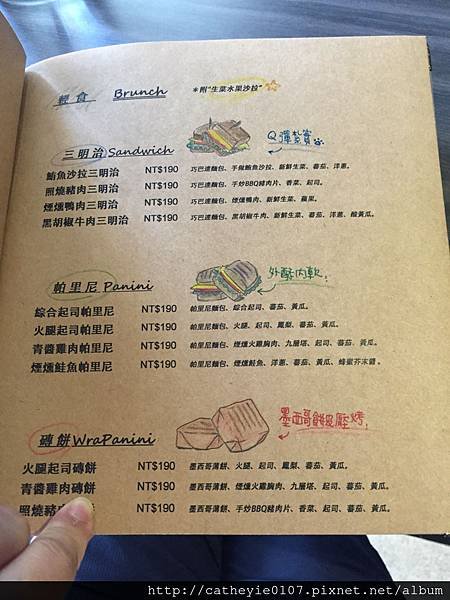 輕食 Brunch ＊附"生菜水果沙拉"
三明治 Sandwich Q彈紮實
鮪魚沙拉三明治 NT$190 巧巴達麵包、手做鮪魚沙拉、新鮮生菜、蕃茄、洋蔥。
照燒豬肉三明治 NT$190 巧巴達麵包、手炒BBQ豬肉片、香菜、起司。
煙燻鴨肉三明治 NT$190 巧巴達麵包、煙燻鴨肉、新鮮生菜、蘋果。
黑胡椒牛肉三明治 NT$190 巧巴達麵包、黑胡椒牛肉、新鮮生菜、蕃茄、洋蔥、酸黃瓜。
帕里尼 Panini 外酥內軟
綜合起司帕里尼 NT$190 帕里尼麵包、綜合起司、蕃茄、黃瓜。
火腿起司帕里尼 NT$190 帕里尼麵包、火腿、起司、鳳梨、蕃茄、黃瓜。
青醬雞肉帕里尼 NT$190 帕里尼麵包、煙燻火雞胸肉、九層塔、起司、蕃茄、黃瓜。
煙燻鮭魚帕里尼 NT$190 帕里尼麵包、煙燻鮭魚、洋蔥、蕃茄、黃瓜、蜂蜜芥末醬。
磚餅 WraPanini 墨西哥餅皮壓烤
火腿起司磚餅 NT$190 墨西哥薄餅、火腿、起司、鳳梨、蕃茄、黃瓜。
青醬雞肉磚餅 NT$190 墨西哥薄餅、煙燻火雞胸肉、九層塔、起司、蕃茄、黃瓜。
照燒豬 NT$190 墨西哥薄餅、手炒BBQ豬肉片、香菜、起司、蕃茄、黃瓜。
http://catheyie0107.pixnet.net/album